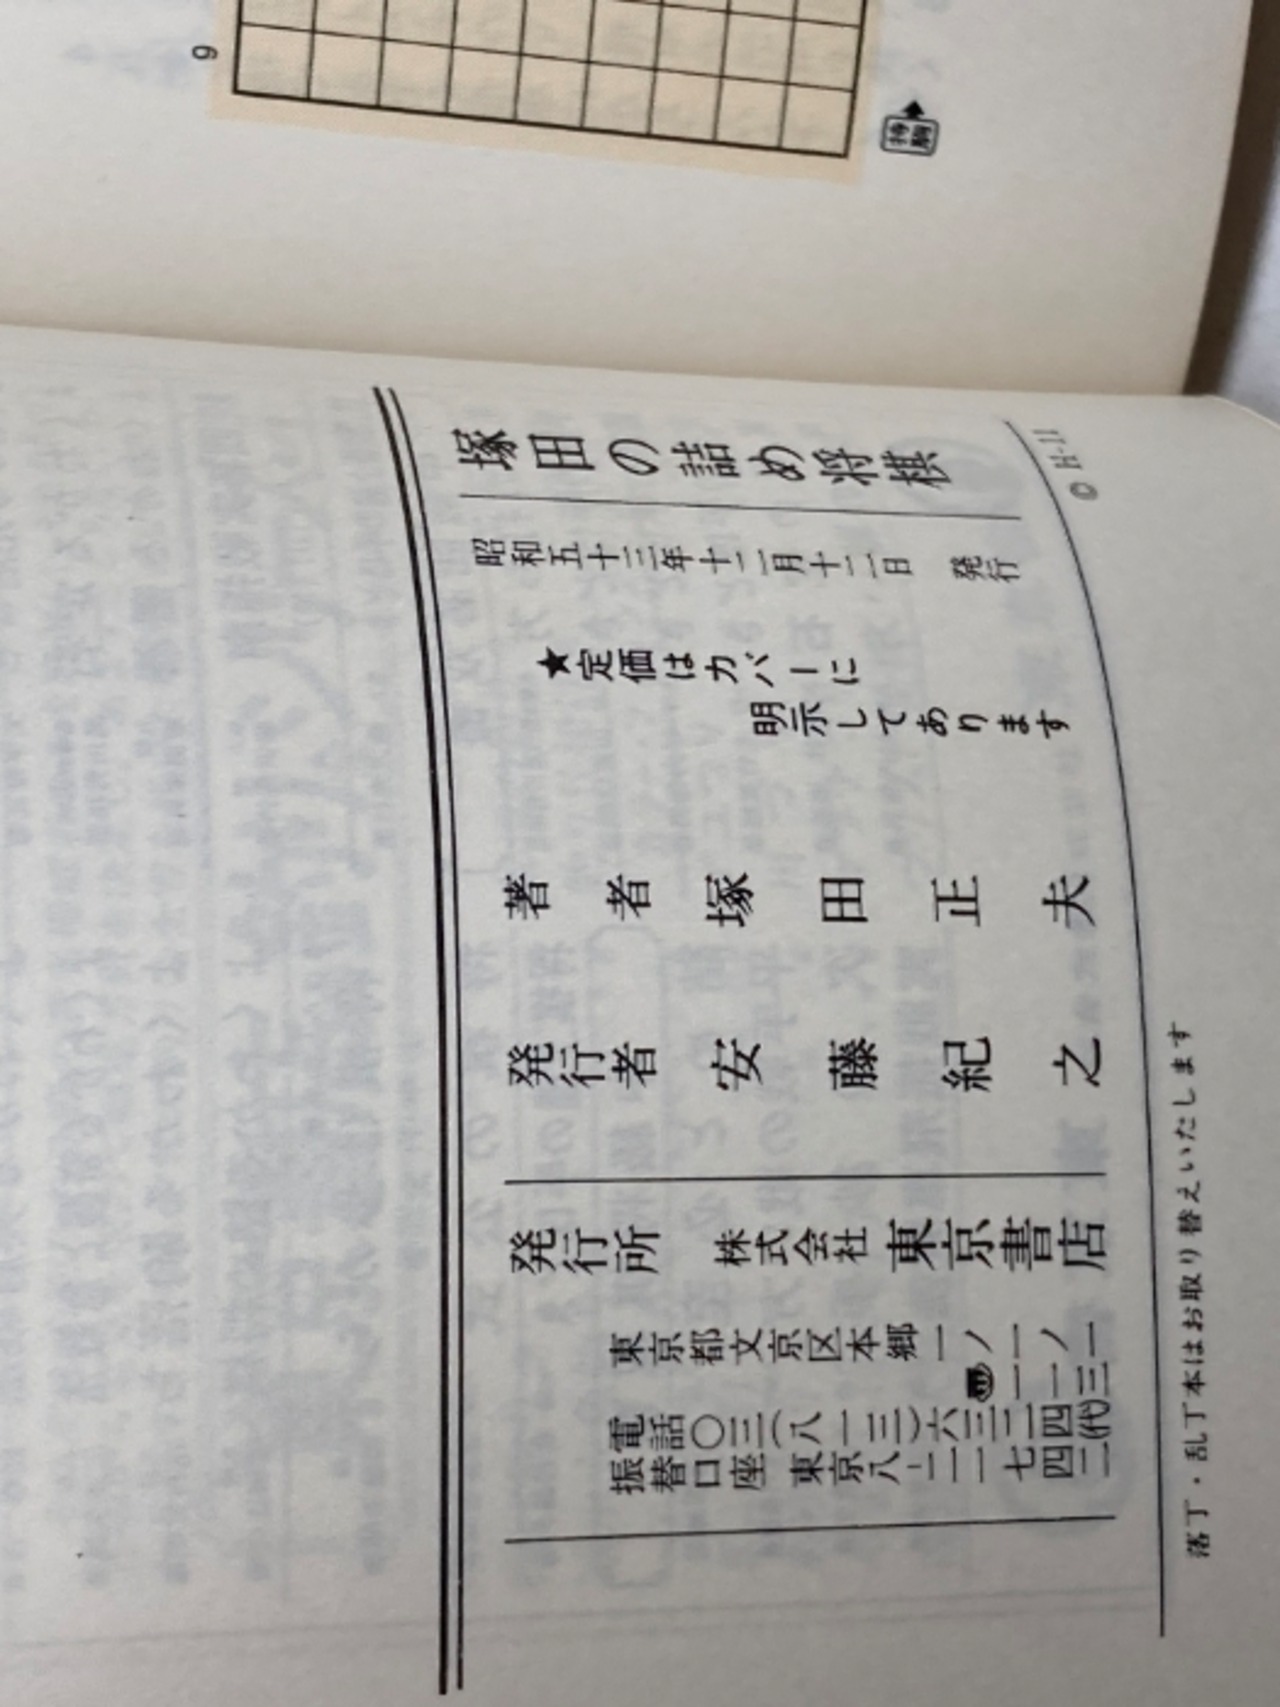 9
持駒
塚田の詰め将棋
© H-11
昭和五十三年十二月十二日 発行
★定価はカバーに
明示してあります
著者 塚田正夫
発行者 安藤紀之
発行所 株式会社 東京書店
東京都文京区本郷一ノ一一ノ三一
電話〇三(八一三)六三三四(代)
振替口座 東京八-
落丁・乱丁本はお取り替えいたします